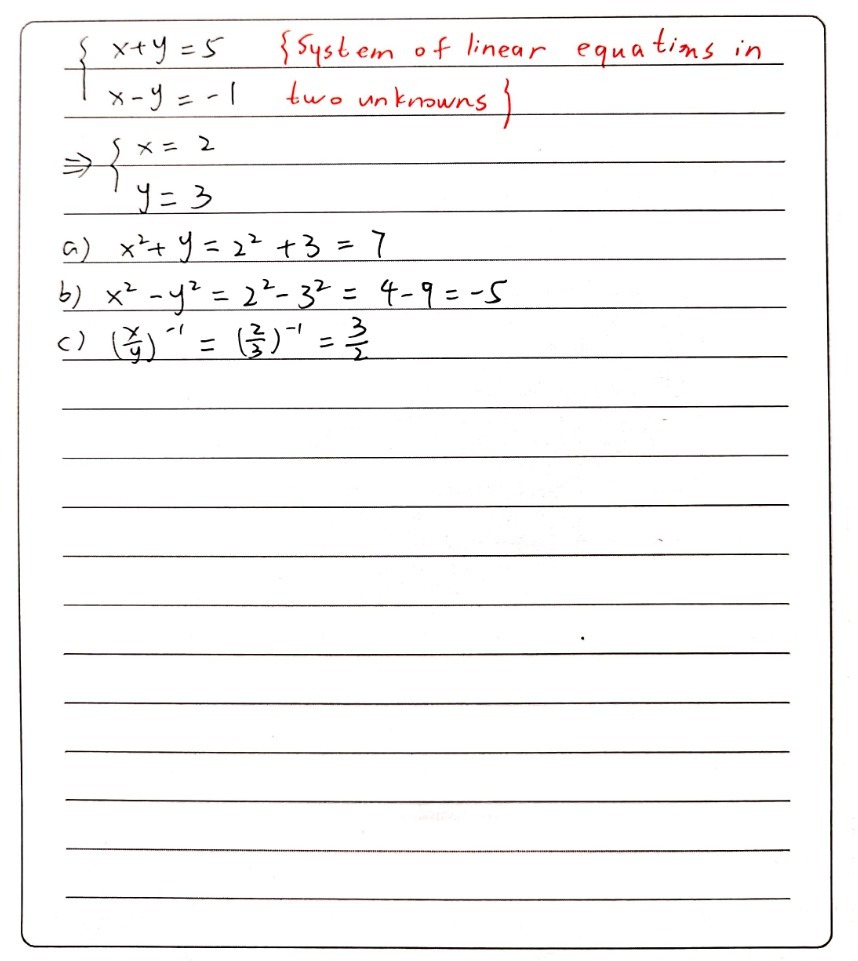 { x+y=5 {System of linear equations in
x-y=-1 two unknowns}
⇒ { x=2
y=3
a) x²+y=2²+3=7
b) x²-y²=2²-3²=4-9=-5
c) (x/y)⁻¹=(2/3)⁻¹=3/2